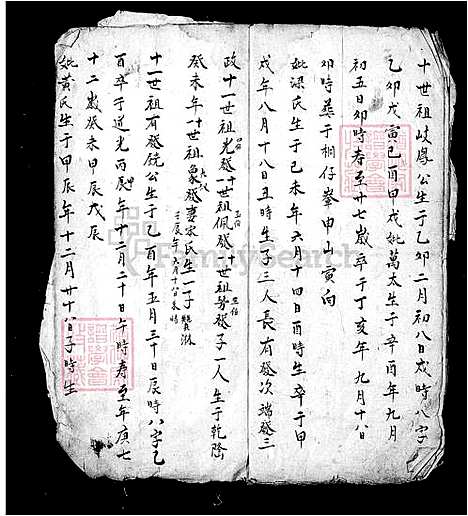 十世祖岐鳳公生于乙卯二月初八日戌時八字
乙卯戊寅己酉甲戌妣萬太生于辛酉年九月
初五日卯時寿至廿七歲卒于丁亥年九月十八
卯時葬于桐仔峯申山寅向
妣梁氏生于己未年六月十四日酉時生卒于甲
戌年八月十八日丑時生子三人長有發次端發三
政十一世祖光發十一世祖佩發十一世祖勞發子一人生于乾隆
癸未年十一世祖象發妻宋氏生一子
壬辰年六月十八日未時
十一世祖有發號公生于乙酉年五月三十日辰時八字乙
酉卒于道光丙辰年十二月二十日午時寿至年庚七
十二歲癸未甲辰戊辰
妣黃氏生于甲辰年十二月廿十八日子時生
FamilySearch